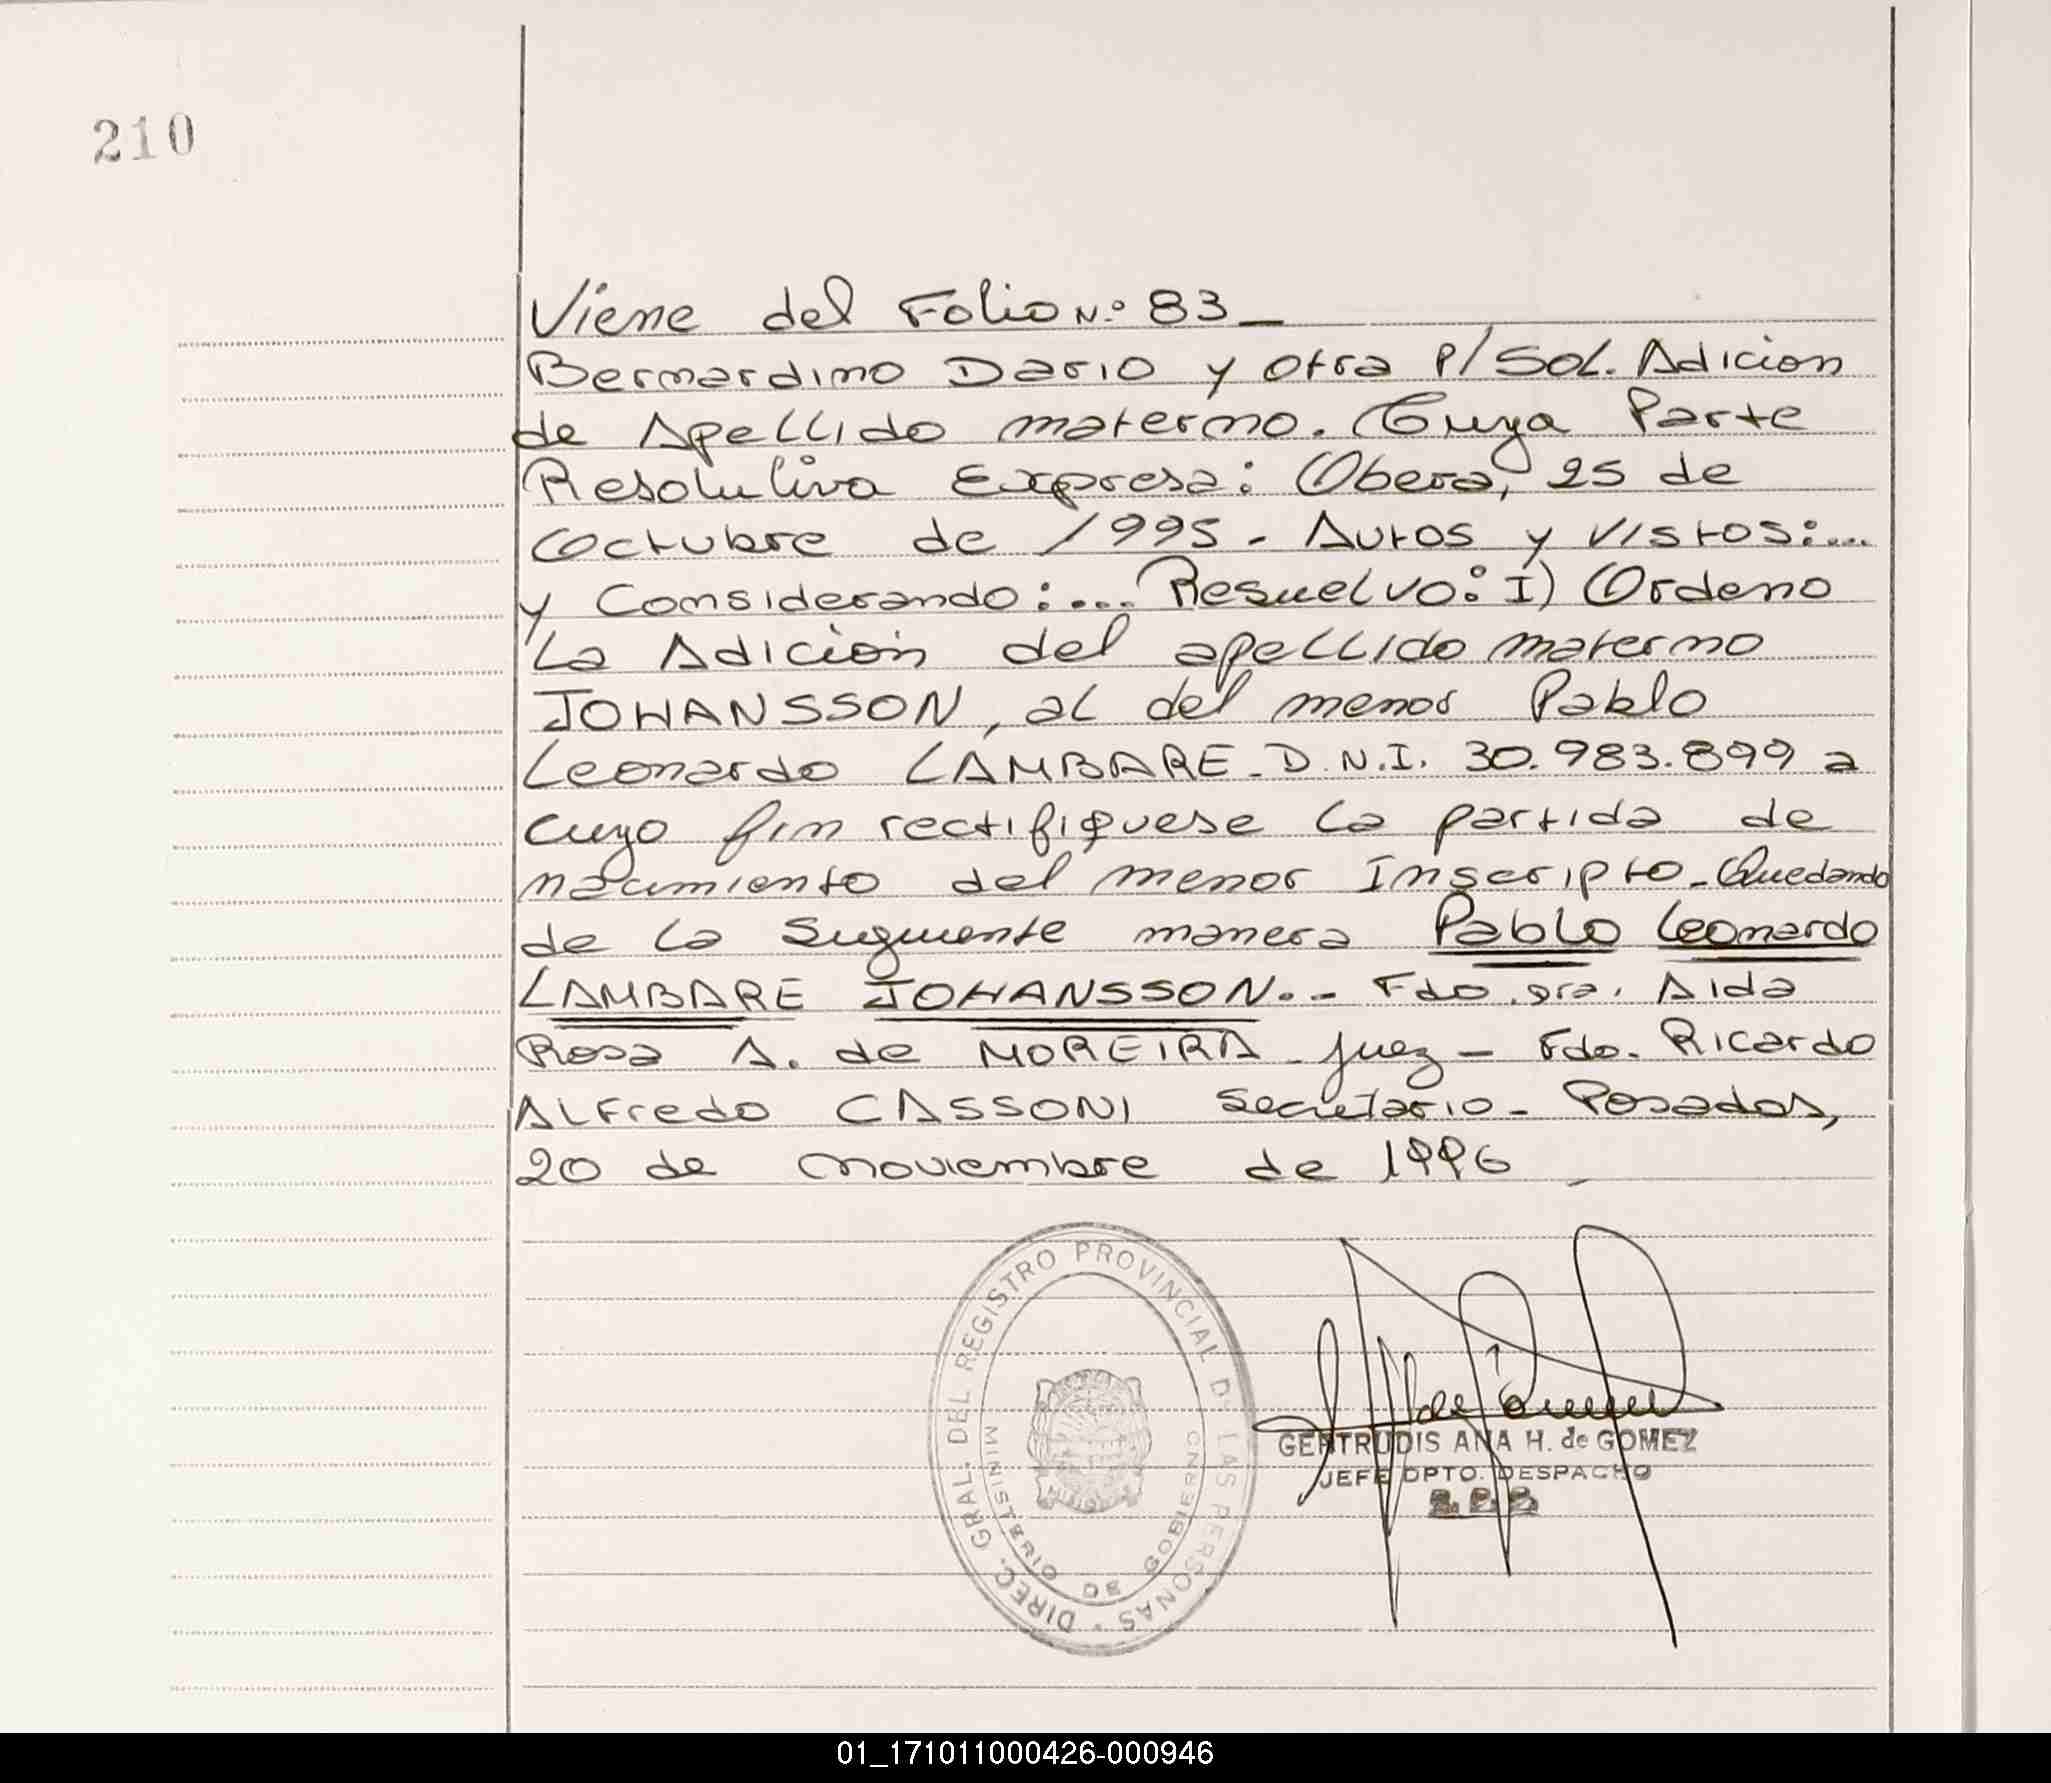 210
Viene del Folio N.º 83_
Bernardino Dario y otra P/ SOL. Adicion
de Apellido materno. Cuya Parte
Resolutiva Expresa: Obera, 25 de
Octubre de 1995 - Autos y Vistos:...
y Considerando:... Resuelvo: I) Ordeno
La Adición del apellido materno
JOHANSSON, al del menor Pablo
Leonardo LAMBARE - D.N.I. 30.983.899 a
cuyo fin rectifiquese la partida de
nacimiento del menor Inscripto - Quedando
de la Siguiente manera Pablo Leonardo
LAMBARE JOHANSSON.- Fdo. Dra. Aida
Rosa A. de MOREIRA - Juez - Fdo. Ricardo
ALFredo CASSONI Secretario - Posadas,
20 de noviembre de 1996 -
DIREC. GRAL. DEL REGISTRO PROVINCIAL DE LAS PERSONAS
MINISTERIO DE GOBIERNO
GERTRUDIS ANA H. de GOMEZ
JEFE DPTO. DESPACHO
01_171011000426-000946